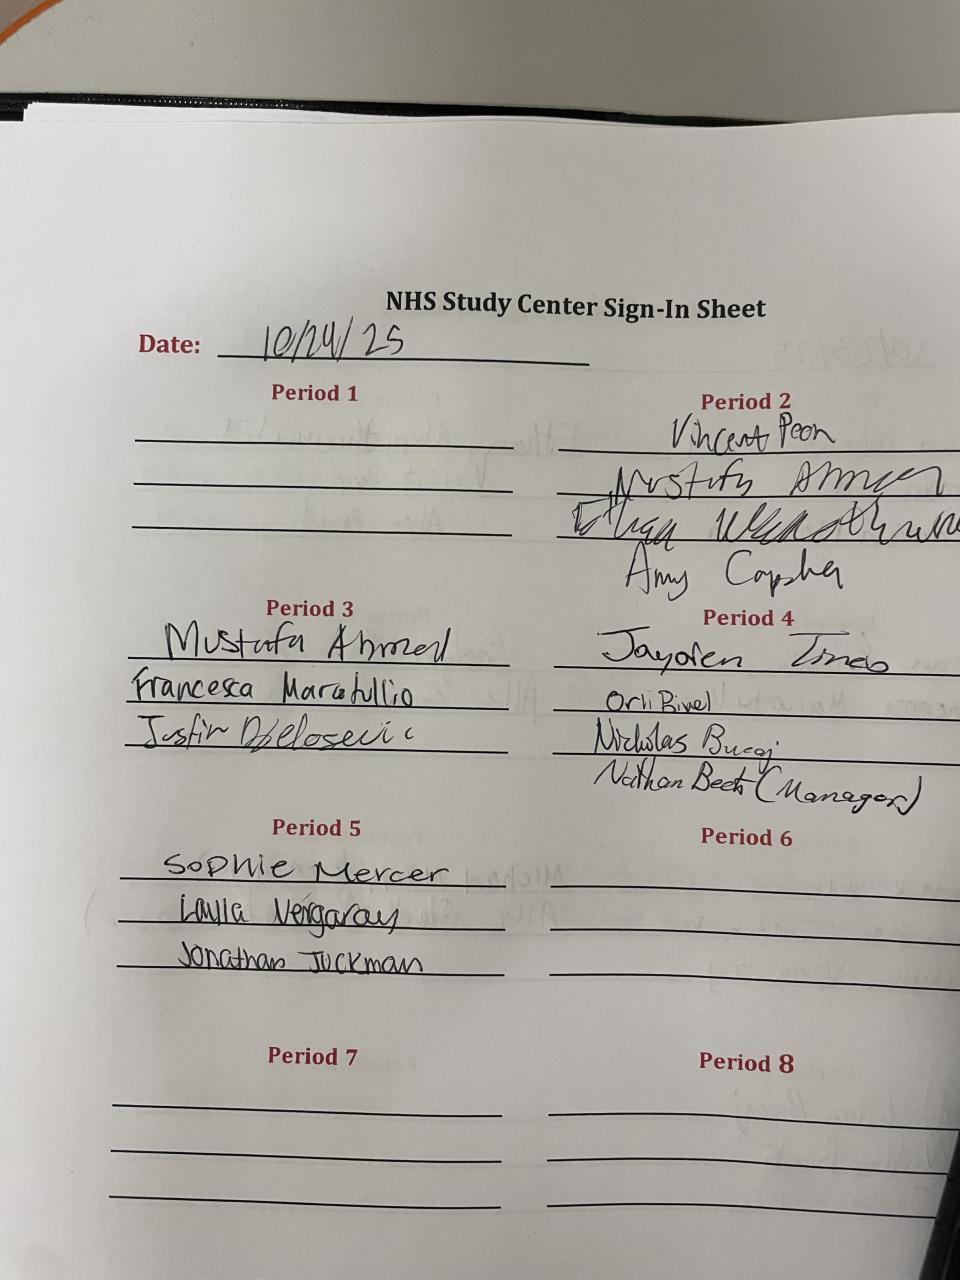 NHS Study Center Sign-In Sheet
Date: 10/24/25
Period 1
Period 2
Vincent Peon
Mustafa Ahmed
Ethan
Amy
Period 3
Mustafa Ahmed
Francesca Maratullio
Justin Djelosevic
Period 4
Jayden
Orli
Nicholas Bucaj
Nathan Beck (Manager)
Period 5
Sophie Mercer
Layla Vergaray
Jonathan Juckman
Period 6
Period 7
Period 8